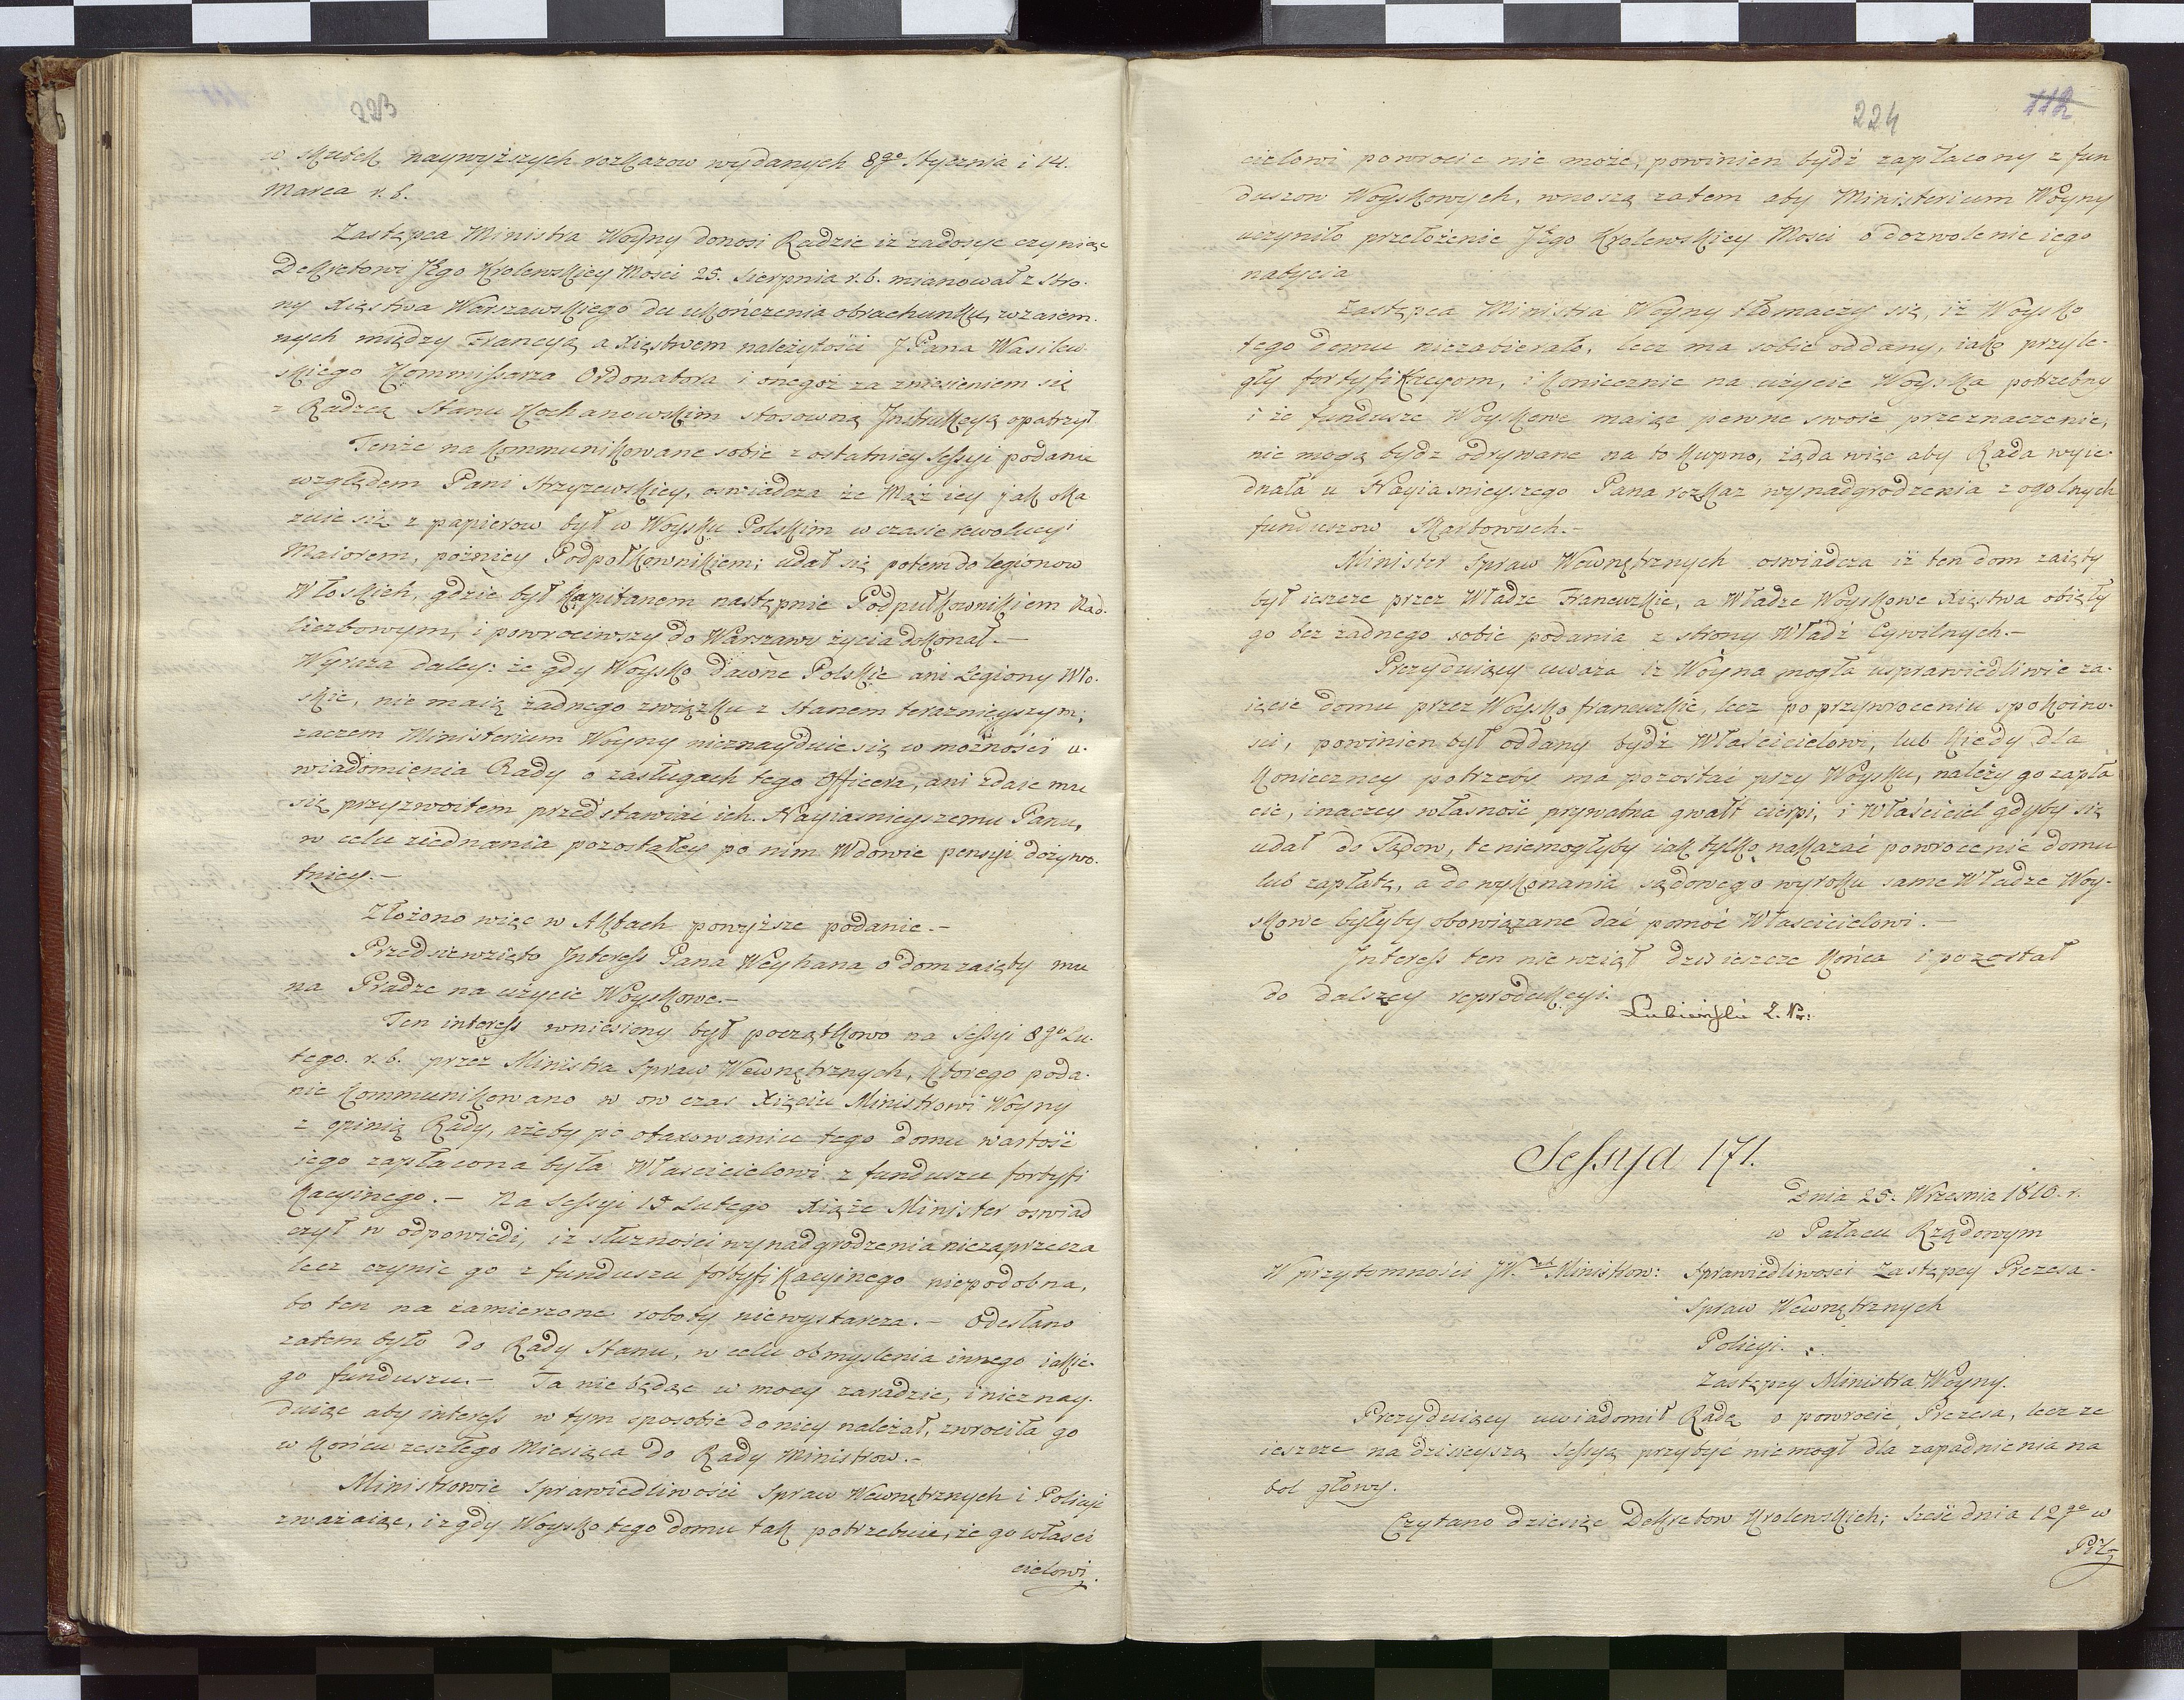 223
w skutek naywyższych rozkazow wydanych 8go Stycznia i 14.
Marca r. b.
Zastępca Ministra Woyny donosi Radzie iż zadosyc czyniąc
Dekretowi Jego Krolewskiey Mosci 25. Sierpnia r. b. mianował z stro-
ny Xięstwa Warszawskiego do ukończenia obrachunku wzaiem-
nych między Francyą a Xięstwem należytości J Pana Wasilew-
skiego Kommissarza Ordonatora i onegoż za zniesieniem się
z Radzcą Stanu Kochanowskim stosowną Jnstrukcyą opatrzył
Tenże na kommunikowane sobie z ostatniey Sessyi podanie
względem Pani Strzyzewskiey, oswiadcza że Mąż iey jak oka
zuie się z papierow był w Woysku Polskim w czasie rewolucyi
Maiorem, poźniey Podpołkownikiem; udał się potem do legionow
Włoskich, gdzie był Kapitanem następnie Podpułkownikiem Nad-
liczbowym, i powrociwszy do Warszawy życia dokonał.-
Wyraza daley: że gdy Woysko dawne Polskie ani Legiony Wło-
skie, nie maią żadnego związku z Stanem teraznieyszym;
zaczem Ministerium Woyny nieznayduie się w możności u-
wiadomienia Rady o zasługach tego Officera, ani zdaie mu
się przyzwoitem przedstawiać ich Nayiasnieyszemu Panu,
w celu ziednania pozostałey po nim Wdowie pensyi dożywo-
tniey.-
Złożono więc w Aktach powyższe podanie.-
Przedsięwzięto Jnteress Pana Weyhana o dom zaięty mu
na Pradze na użycie Woyskowe.-
Ten interess wniesiony był początkowo na Sessyi 8go Lu-
tego r. b. przez Ministra Spraw Wewnętrznych, ktorego poda-
nie kommunikowano w ow czas Xięciu Ministrowi Woyny
z opinią Rady, ażeby po otaxowaniu tego domu wartość
iego zapłacona była Włascicielowi z funduszu fortyfi
kacyinego.- Na Sessyi 15 Lutego Xiąże Minister oswiad
czył w odpowiedi, iz słuzności wynadgrodzenia niezaprzecza
lecz czynic go z funduszu fortyfikacyinego niepodobna,
bo ten na zamierzone roboty niewystarcza.- Odesłano
zatem było do Rady Stanu, w celu obmyslenia innego iakie-
go funduszu.- Ta nie będąc w mocy zaradzic, i nieznay-
duiąc aby interess w tym sposobie do niey należał, zwrociła go
w końcu zeszłego Miesiąca do Rady Ministrow.-
Ministrowie Sprawiedliwości Spraw Wewnętrznych i Policyi
zważaiąc, iż gdy Woysko tego domu tak potrzebuie, że go własci
cielowi.
224
112
cielowi powrocic nie może, powinien bydź zapłacony z fun
duszow Woyskowych, wnoszą zatem aby Ministerium Woyny
uczyniło przełożenie Jego Krolewskiey Mosci o dozwolenie iego
nabycia
Zastępca Ministra Woyny tłómaczy się, iż Woysko
tego domu niezabierało, lecz ma sobie oddany, iako przyle-
gły fortyfikacyom, i koniecznie na użycie Woyska potrzebny
i że fundusze Woyskowe maiąc pewne swoie przeznaczenie,
nie mogą bydź odrywane na to kupno, żąda więc aby Rada wyie-
dnała u Nayiasnieyszego Pana rozkaz wynadgrodzenia z ogolnych
funduszow Skarbowych.-
Minister Spraw Wewnętrznych oswiadcza iż ten dom zaięty
był ieszcze przez Władze Francuzkie, a Władze Woyskowe Xięstwa obięły
go bez żadnego sobie podania z strony Władz Cywilnych.-
Prezyduiący uważa iż Woyna mogła usprawiedliwic za-
ięcie domu przez Woysko francuzkie, lecz po przywroceniu spokoino-
sci, powinien był oddany bydź Właścicielowi, lub kiedy dla
konieczney potrzeby ma pozostać przy Woysku, należy go zapła
cic, inaczey własność prywatna gwałt cierpi, i Właściciel gdyby się
udał do Sądow, te niemogłyby iak tylko nakazać powrocenie domu
lub zapłatę, a do wykonania sądowego wyroku same Władze Woy-
skowe byłyby obowiązane dać pomoc Włascicielowi.-
Jnteress ten nie wziął dzis ieszcze końca i pozostał
do dalszey reprodukcyi.
Lubieński Z. Pr:
Sessya 171.
Dnia 25. Wrzesnia 1810. r.
w Pałacu Rządowym
W przytomności JW. Ministrow: Sprawiedliwosci Zastępcy Prezesa-
Spraw Wewnętrznych
Policyi.
Zastępcy Ministra Woyny.
Prezyduiący uwiadomił Radę o powrocie Prezesa, lecz ze
ieszcze na dzisieyszą Sessyą przybyć niemogł dla zapadnienia na
bol głowy.
Czytano dziesięc Dekretow Krolewskich; Sześć dnia 12go w
Pil-